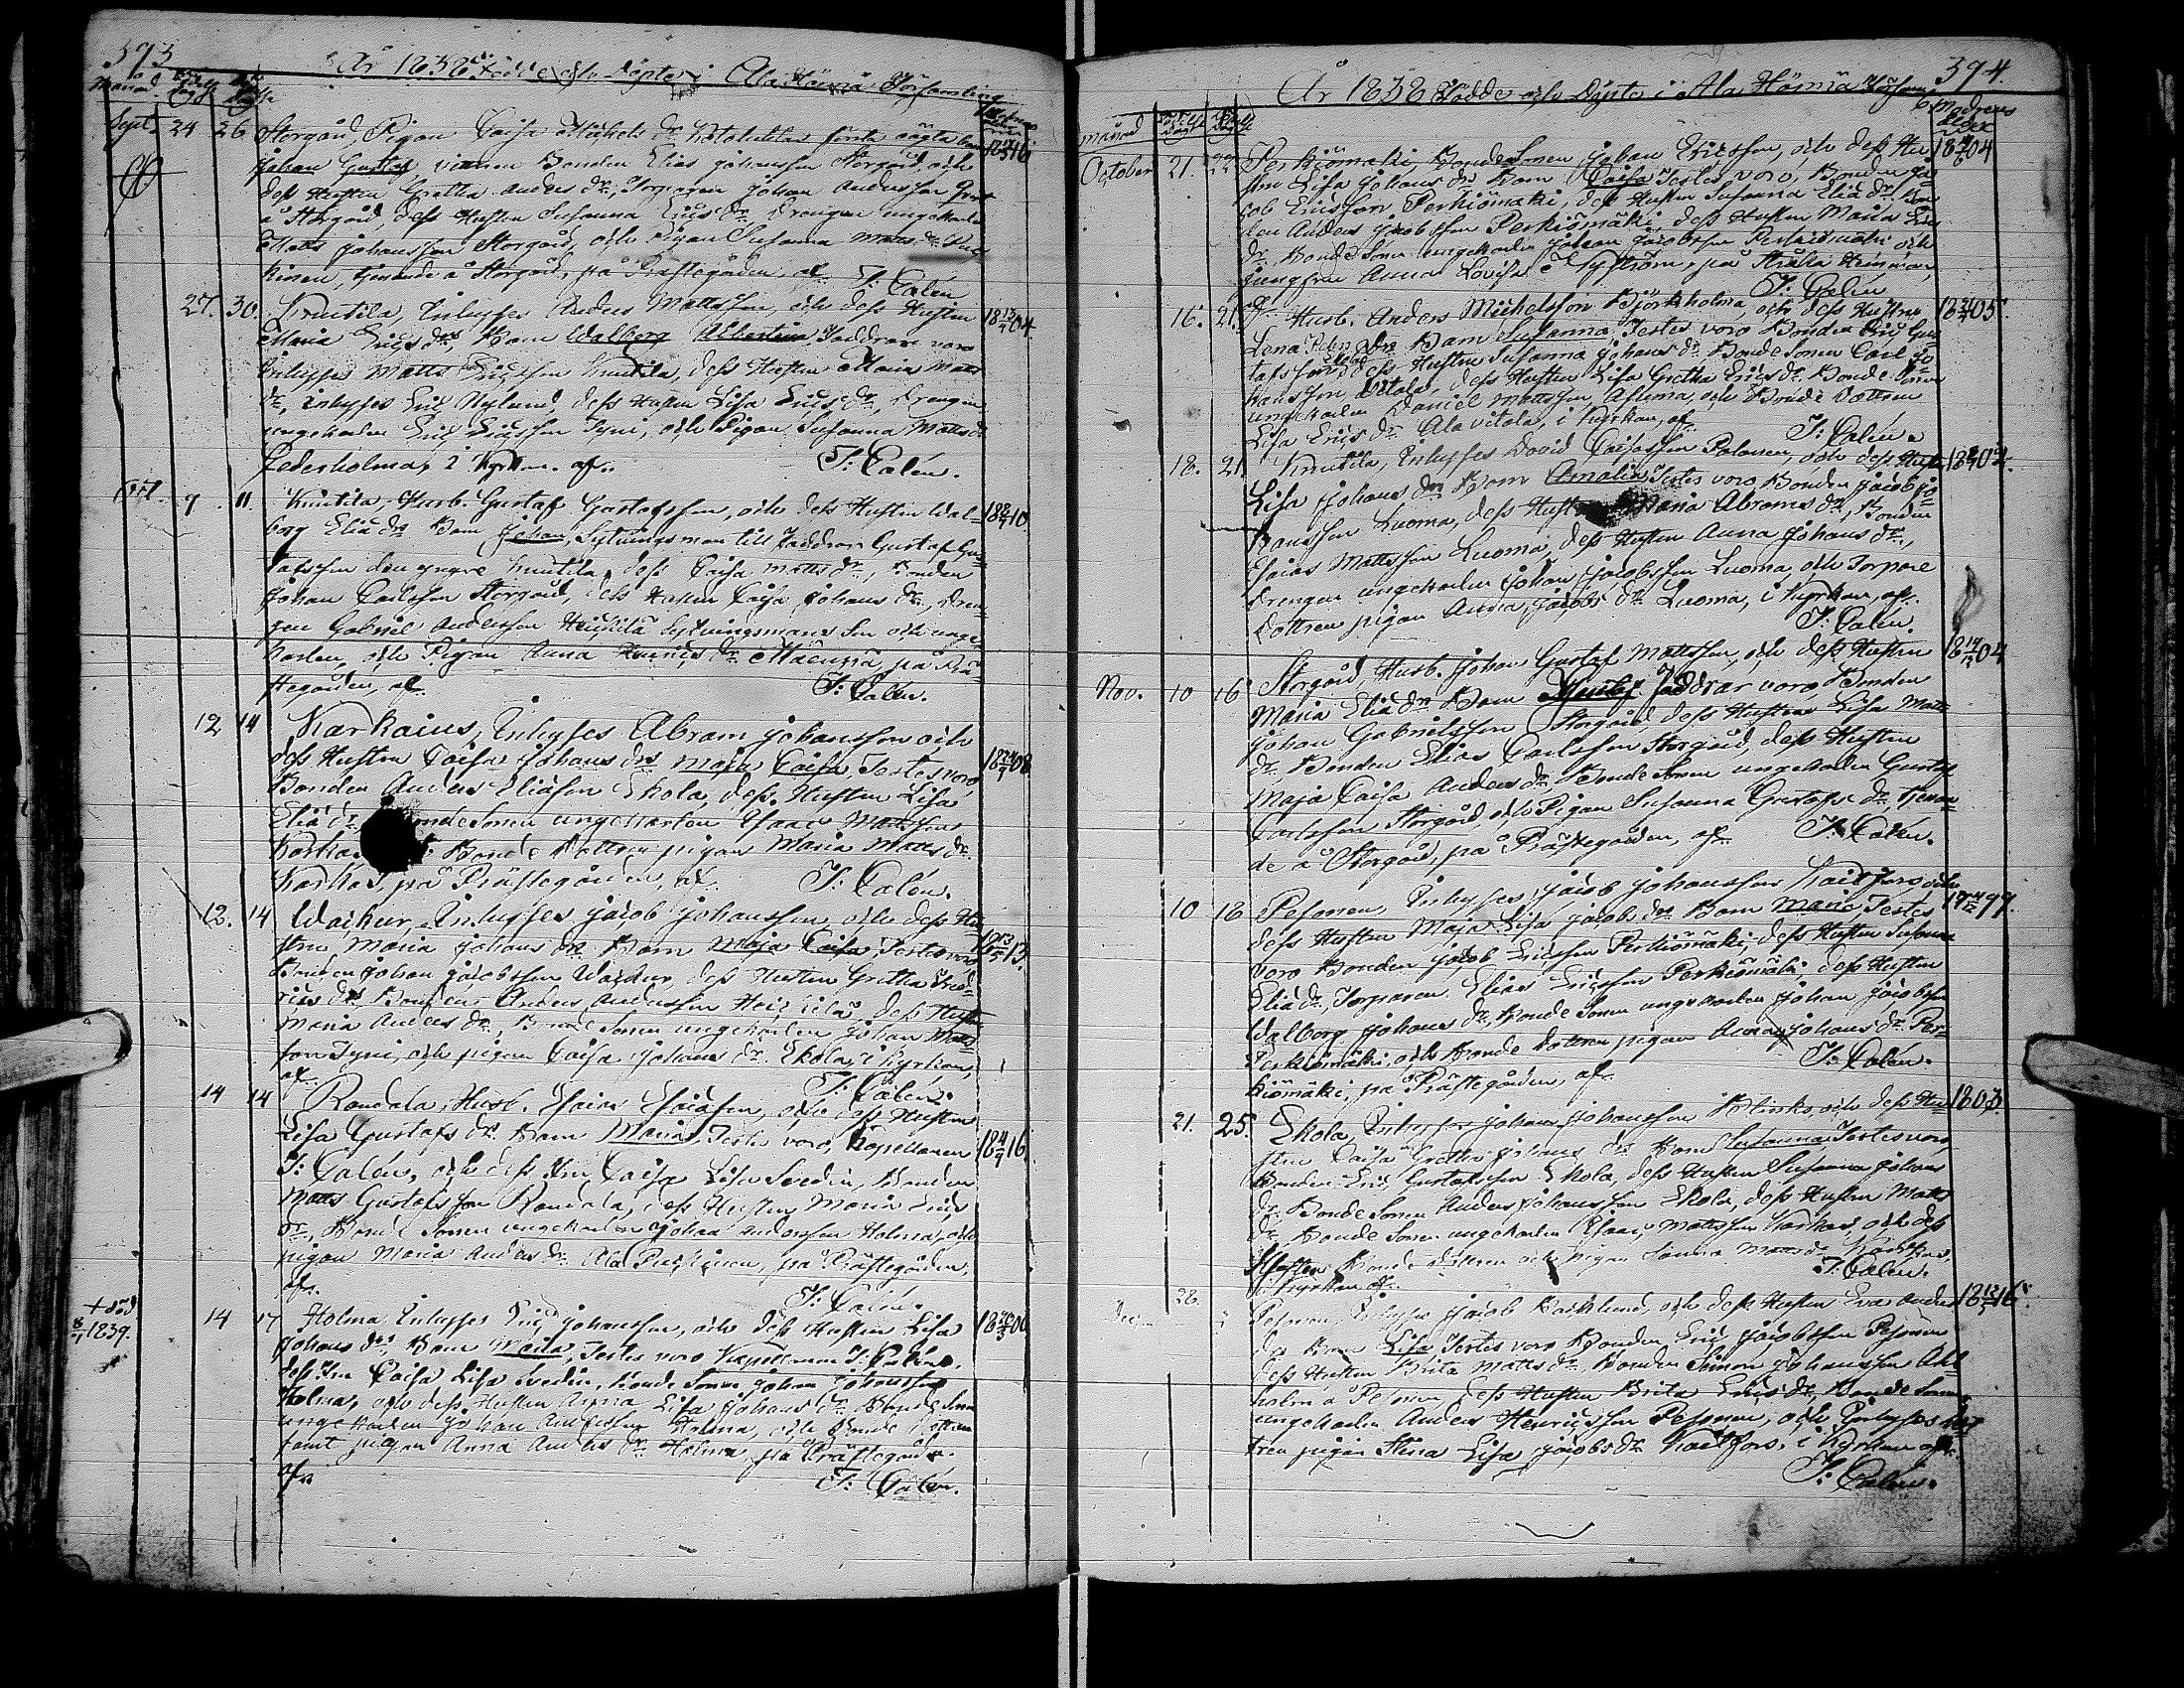 393
År 1838 Födde och Döpte i Ala Härmä Församling
Månad
Sept. 24 26 Storgård, Pigan Caisa Michels dr första oägta barn 16
Johan Gustaf, vittnen Bonden Elias Johansson Storgård, och
dess Hustru Gretha Anders dr, Torparen Johan Andersson
å Storgård, dess Hustru Susanna Erics dr, Drengen ungekarlen
Matts Johansson Storgård, och Pigan Susanna Matts dr
tjenande å Storgård, på Prästegården, af. J: Calén
27. 30. Knutila, Inhyses Anders Mattsson, och dess Hustru 1804
Maria Erics drs Barn Walborg Albertina Faddrar voro
Inhyses Matts Ericsson Knutila, dess Hustru Maria Matts
dr, Inhyses Eric Nylund, dess Hustru Lisa Erics dr, Drengen
ungekarlen Eric Ericsson Tyni, och Pigan Susanna Matts dr
Cederholma, i Kyrkan. af. J: Calén.
9. 11. Knutila, Husb. Gustaf Gustafsson, och dess Hustru Wal- 1810
borg Elia drs Barn Johan, Sytningsman till Faddrar Gustaf Gus-
tafsson den yngre Knutila, dess Caisa Matts dr, Bonden
Johan Carlsson Storgård, dess Hustru Caisa Johans dr, Dren-
gen Gabriel Andersson Heikkilä Sytningsmans Son och unge-
karlen, och Pigan Anna dr på Prä-
stegården, af. J: Calén.
12 14 Karhaius, Inhyses Abram Johansson och
dess Hustru Caisa Johans drs Maja Caisa, Testes voro 1808
Bonden Anders Eliasson Ekola, dess Hustru Lisa
Elia dr Bonde Sonen ungekarlen Isaac Mattsson
Bonde Dottren pigan Maria Matts dr
Karhas, på Prästegården, af. J: Calén.
12. 14 Waihur, Inhyses Jacob Johansson, och dess Hu-
stru Maria Johans drs Barn Maja Caisa, Testes voro 13.
Bonden Johan Jacobsson Waihur, dess Hustru Gretha
dr, Bonden Anders Andersson Heikkilä, dess Hustru
Maria Anders dr, Bonde Sonen ungekarlen Johan Matts-
son Tyni, och pigan Caisa Johans dr Ekola, i Kyrkan,
af. J: Calén.
14 14 Randala, Husb. Esaias Esaiasson, och dess Hustru
Lisa Gustafs drs Barn Maria, Testes voro, Kapellanen 1816
J: Calén, och dess Fru Caisa Lisa Svedin, Bonden
Matts Gustafsson Randala, dess Hustru Maria Erics
dr, Bonde Sonen ungekarlen Johan Andersson Holma, och
pigan Maria Anders dr Ala på Prästegården,
af. J: Calén.
† död
8/1 1839.
14 17 Holma Inhyses Eric Johansson, och dess Hustru Lisa
Johans drs Barn Maria, Testes voro Kapellanen J: Calén,
dess Fru Caisa Lisa Svedin, Bonde Sonen Johan Johansson
Holma, och dess Hustru Anna Lisa Johans dr Bonde Sonen
ungekarlen Johan Andersson Holma, och Bonde Dottren
samt pigan Anna Anders dr Holma, på Prästegården.
af. J: Calén.
394.
År 1838 Födde och Döpte i Ala Härmä Församl
Månad
October 21. Perkiömäki, Bonde Sonen Johan Ericsson, och dess Hu- 1804
stru Lisa Johans drs Barn Caisa Testes voro, Bonden Ja-
cob Ericsson Perkiömäki, dess Hustru Susanna Elia dr, Bon-
den Anders Jacobsson Perkiömäki, dess Hustru Maria Erics
dr, Bonde Sonen ungekarlen Johan Jacobsson Perkiömäki och
Jungfrun Anna Lovisa Nyström, på
J: Calén
16. 21. Husb. Anders Michelsson Björkholma, och dess Hustru 1805.
Lena drs Barn Susanna. Testes voro Bonden Eric Gus-
tafsson Ekola dess Hustru Susanna Johans dr. Bonde Sonen Carl Jo-
hansson Vitala, dess Hustru Lisa Gretha Erics dr. Bonde Sonen
ungekarlen Daniel Mattsson, och Bonde Dottren
Lisa Erics dr. Ala vitala, i Kyrkan, af. J: Calén.
18. 21. Knutila, Inhyses David och dess Hustru 1802.
Lisa Johans drs Barn Amalia Testes voro, Bonden Jacob Jo-
hansson Luoma, dess Hustru Maria Abrams dr, Bonden
Esaias Mattsson Luoma, dess Hustru Anna Johans dr,
Drengen ungekarlen Johan Jacobsson Luoma, och Torpare
Dottren pigan Anna Jacobs dr Luoma, i Kyrkan, af.
J: Calén.
Nov. 10 16 Storgård, Husb. Johan Gustaf Mattsson, och dess Hustru 1804
Maria Elia drs Barn Faddrar voro, Bonden
Johan Gabrielsson Storgård, dess Hustru Lisa Matts
dr, Bonden Elias Carlsson Storgård, dess Hustru
Maja Caisa Anders dr, Bonde Sonen ungekarlen Gustaf
Carlsson Storgård, och Pigan Susanna Gustafs dr tjenan-
de å Storgård, på Prästegården, af. J: Calén.
10 18 Pesonen, Inhyses Jacob Johansson Kaitfors, och 1797.
dess Hustru Maja Lisa Jacobs drs Barn Maria, Testes
voro Bonden Jacob Ericsson Perkiömäki, dess Hustru Susanna
Elia dr, Torparen Elias Ericsson Perkiömäki, dess Hustru
Walborg Johans dr, Bonde Sonen ungekarlen Johan Jacobsson
Perkiömäki, och Bonde Dottren pigan Anna Johans dr Per-
kiömäki, på Prästegården, af. J: Calén.
21. 25. Ekola, Inhyses Johan Johansson och dess Hu- 1803
stru Caisa Gretha Johans drs Barn Susanna Testes voro,
Bonden Eric Gustafsson Ekola, dess Hustru Susanna Johans
dr. Bonde Sonen Anders Johansson Ekola, dess Hustru Matts
dr. Bonde Sonen ungekarlen Isaac Mattsson Karhas, och dess
Hustru Bonde Dottren och pigan Sanna Matts dr Karhas,
i Kyrkan af. J: Calén.
28. Pesonen, Inhyses Jacob Backlund, och dess Hustru Eva Anders 1816.
drs Barn Lisa Testes voro Bonden Eric Jacobsson Pesonen
dess Hustru Brita Matts dr. Bonden Simon Johansson Ahl-
holm å Pesonen, dess Hustru Brita Erics dr, Bonde Sonen
ungekarlen Anders Henricsson Pesonen, och Inhyses Dot-
tren pigan Stina Lisa Jacobs dr Kaitfors, i Kyrkan af.
J: Calén.